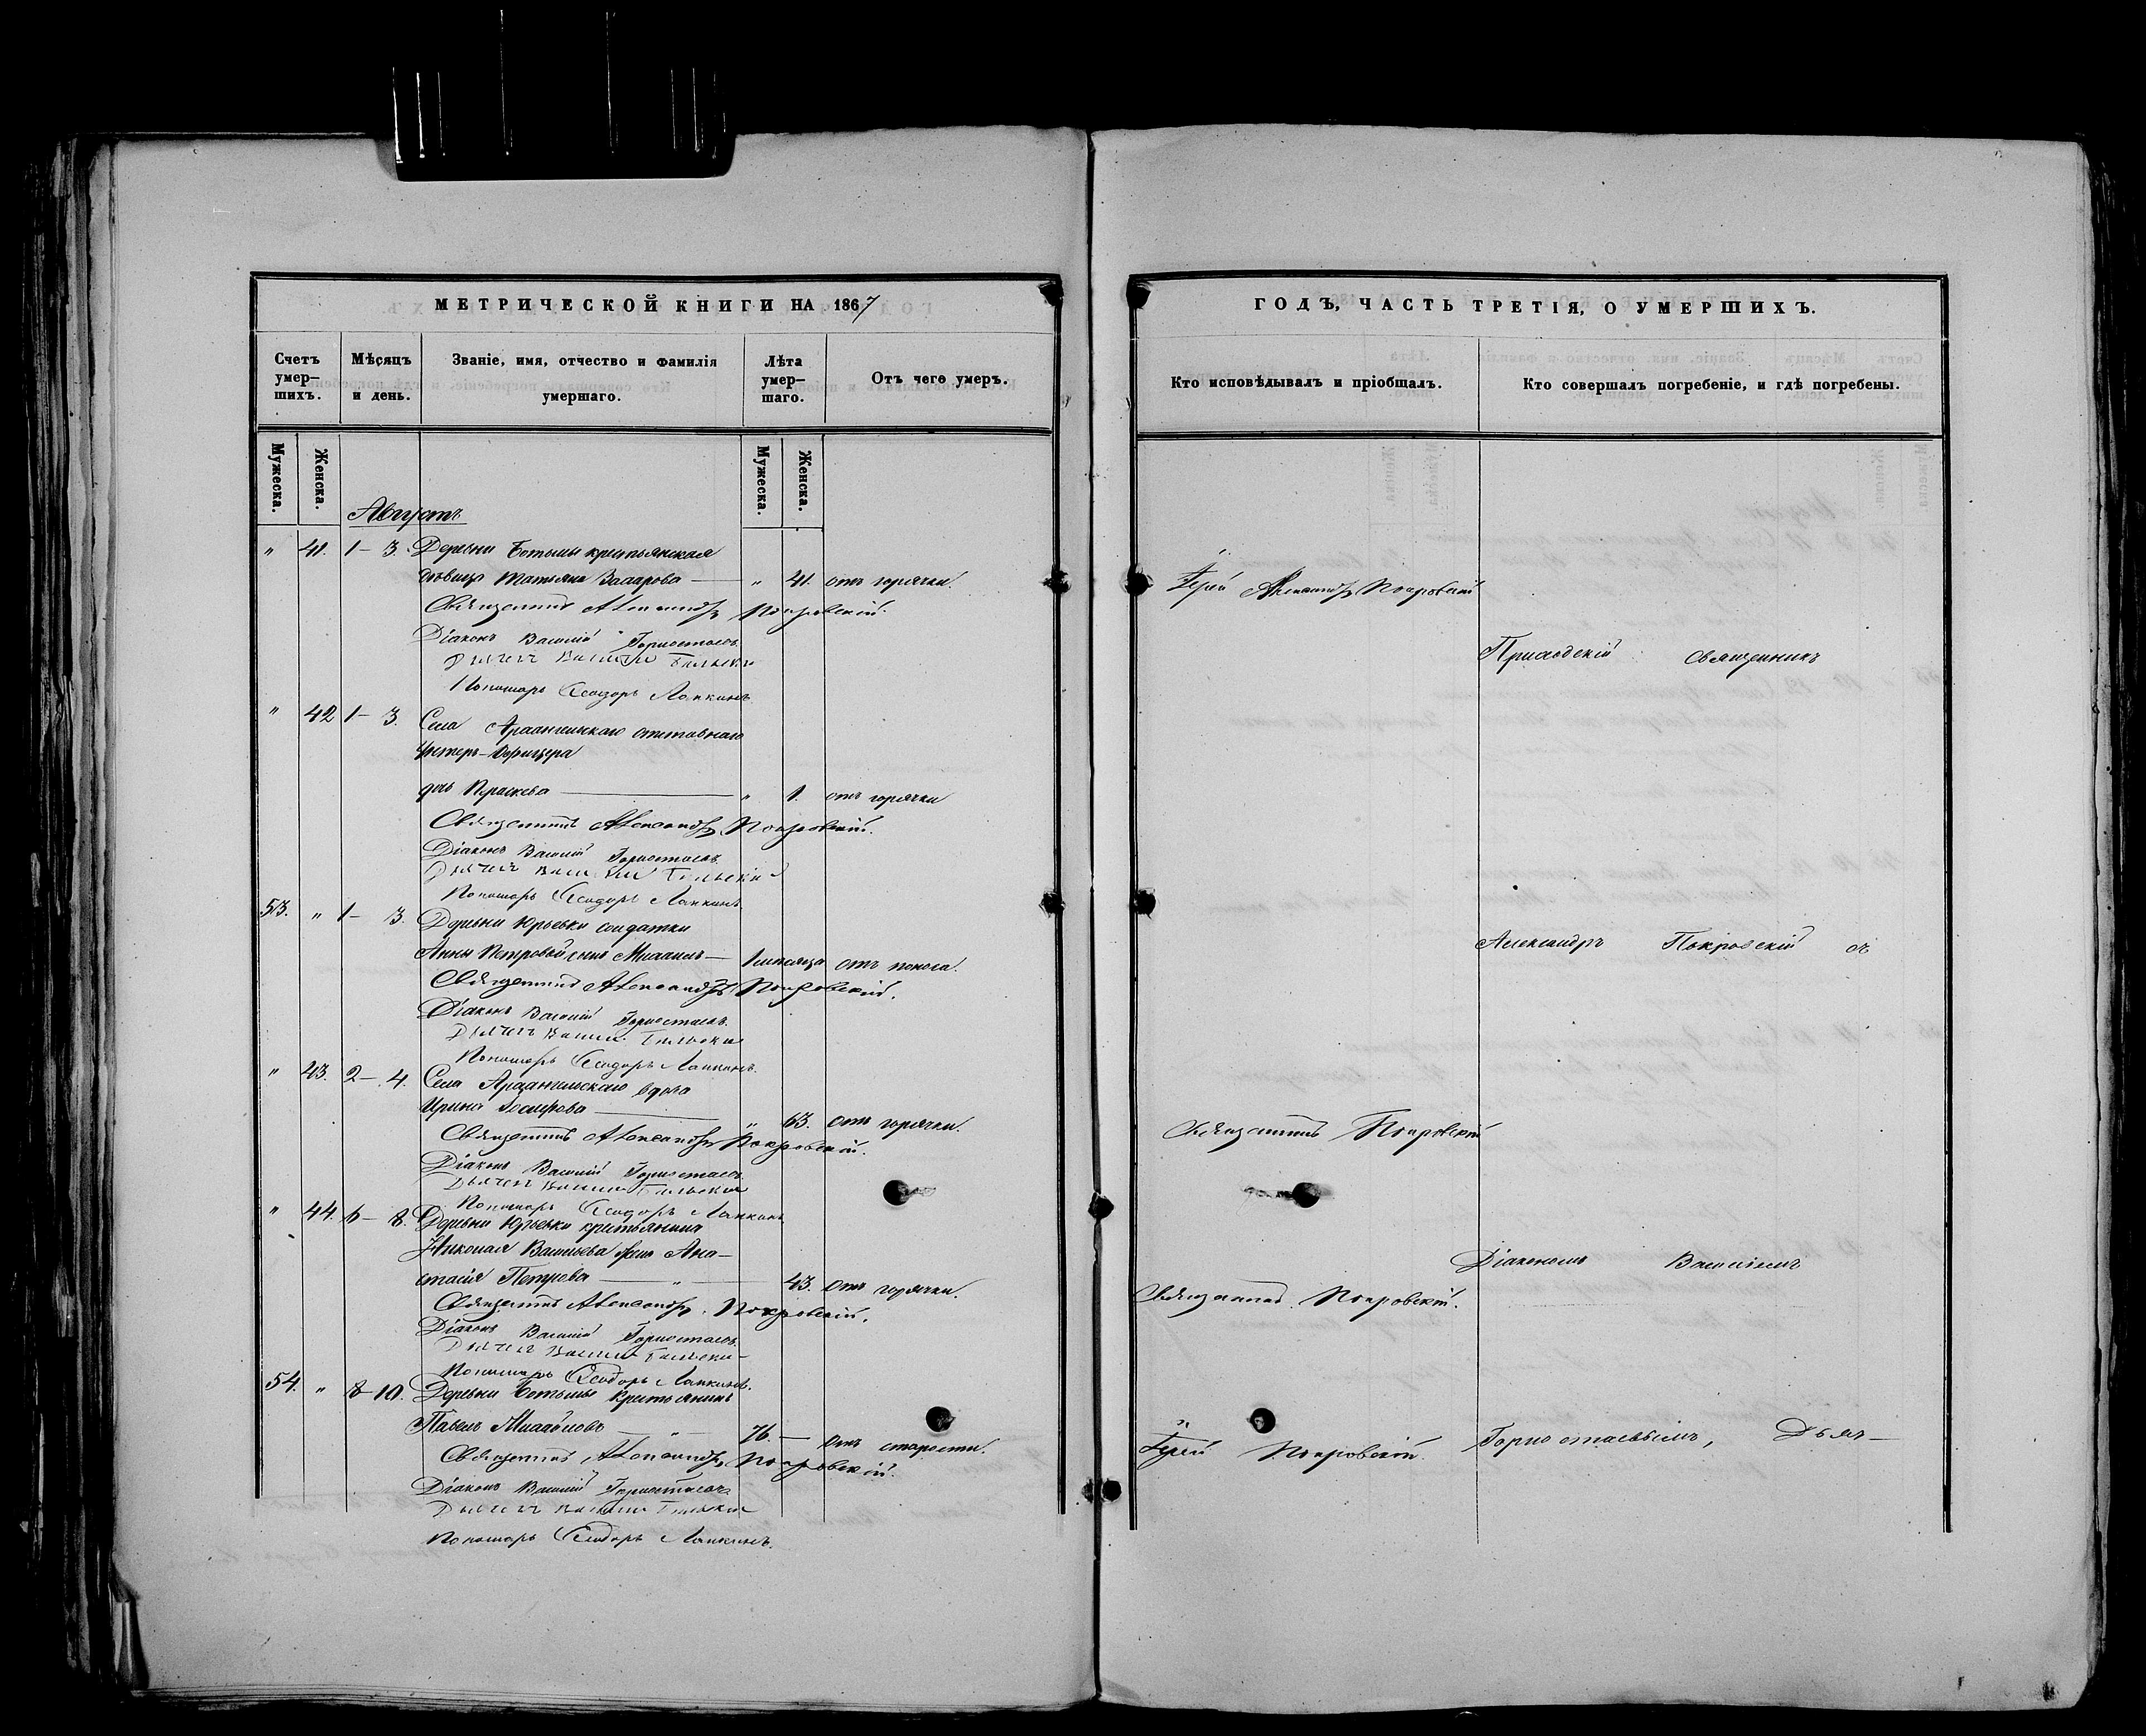 МЕТРИЧЕСКОЙ КНИГИ НА 1867
Счетъ умер-шихъ. Мѣсяцъ и день. Званіе, имя, отчество и фамилія умершаго. Лѣта умер-шаго. Отъ чего умеръ.
Мужеска. Женска. Мужеска. Женска.
Августъ
" 41. 1 – 3. Деревни Ботьмы крестьянская
дѣвица Татьяна Захарова — " 41. отъ горячки.
Священникъ Александръ Покровскій.
Діаконъ Василій Горностаевъ.
Дьячекъ Василій
Пономарь Ѳеодоръ Лапкинъ
" 42 1 – 3. Села Архангельскаго отставнаго
Унтеръ-Офицера
дочь — " 1. отъ горячки
Священникъ Александръ Покровскій.
Діаконъ Василій Горностаевъ.
Дьячекъ Василій
Пономарь Ѳеодоръ Лапкинъ.
53. " 1 – 3. Деревни Юрьевки солдатки
Анны Петровой сынъ Михаилъ — 1 мѣсяца отъ поноса.
Священникъ Александръ Покровскій.
Діаконъ Василій Горностаевъ.
Дьячекъ Василій
Пономарь Ѳеодоръ Лапкинъ.
" 43. 2 – 4. Села Архангельскаго вдова
Ирина — " 63. отъ горячки.
Священникъ Александръ Покровскій.
Діаконъ Василій Горностаевъ.
Дьячекъ Василій
Пономарь Ѳеодоръ Лапкинъ
" 44. 6 – 8. Деревни Юрьевки крестьянина
Николая Васильева жена Ана-
стасія Петрова — " — 43. отъ горячки.
Священникъ Александръ Покровскій.
Діаконъ Василій Горностаевъ.
Дьячекъ Василій
Пономарь Ѳеодоръ Лапкинъ.
54. " 8 – 10. Деревни Ботьмы крестьянинъ
Павелъ Михайловъ — " 76. — отъ старости.
Священникъ Александръ Покровскій.
Діаконъ Василій Горностаевъ
Дьячекъ Василій
Пономарь Ѳеодоръ Лапкинъ.
ГОДЪ, ЧАСТЬ ТРЕТІЯ, О УМЕРШИХЪ.
Кто исповѣдывалъ и пріобщалъ. Кто совершалъ погребеніе, и гдѣ погребены.
Іерей Александръ Покровскій
Приходскій священникъ
Александръ Покровскій съ
Священникъ Покровскій
Діакономъ Василіемъ
Священникъ Покровскій.
Іерей Покровскій. Горностаевымъ, Дьяч-